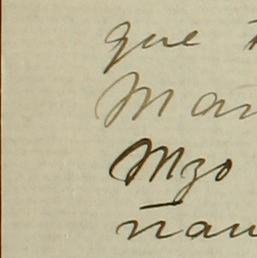 que
Man
Mzo
ñau